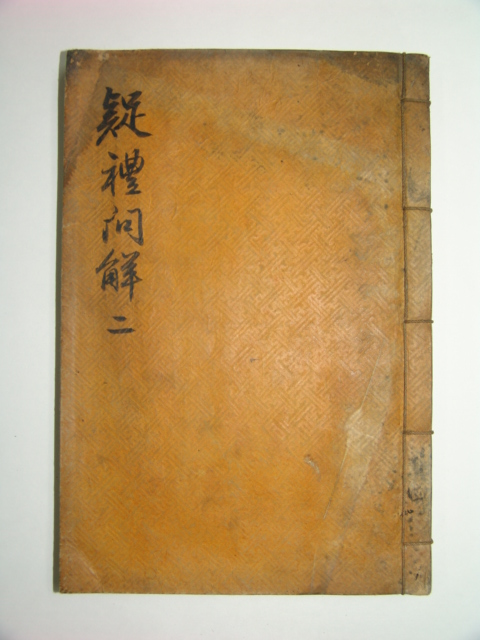 疑禮問解二